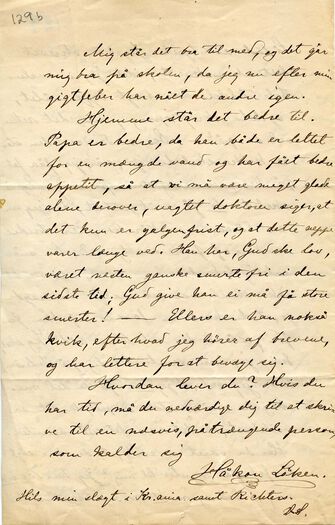 129b
Mig står det bra til med, og det går
mig bra på skolen, da jeg nu efter min
gigtfeber har nået de andre igen.
Hjemme står det bedre til.
Papa er bedre, da han både er lettet
for en mængde vand og har fået bedre
appetit, så at vi må være meget glade
alene derover, uagtet doktoren siger, at
det kun er galgenfrist, og at dette neppe
varer længe ved. Han har, Gud ske lov,
været næsten ganske smertefri i den
sidste tid. Gud give han ei må få store
smerter! — Ellers er han nokså
kvik, efter hvad jeg hører af brevene,
og har lettere for at bevæge sig.
Hvordan lever du? Hvis du
har tid, må du nedværdige dig til at skri-
ve til en næsvis, påtrængende person,
som kalder sig
Håkon Löken.
Hils min slægt i Kr.ania samt Richters.